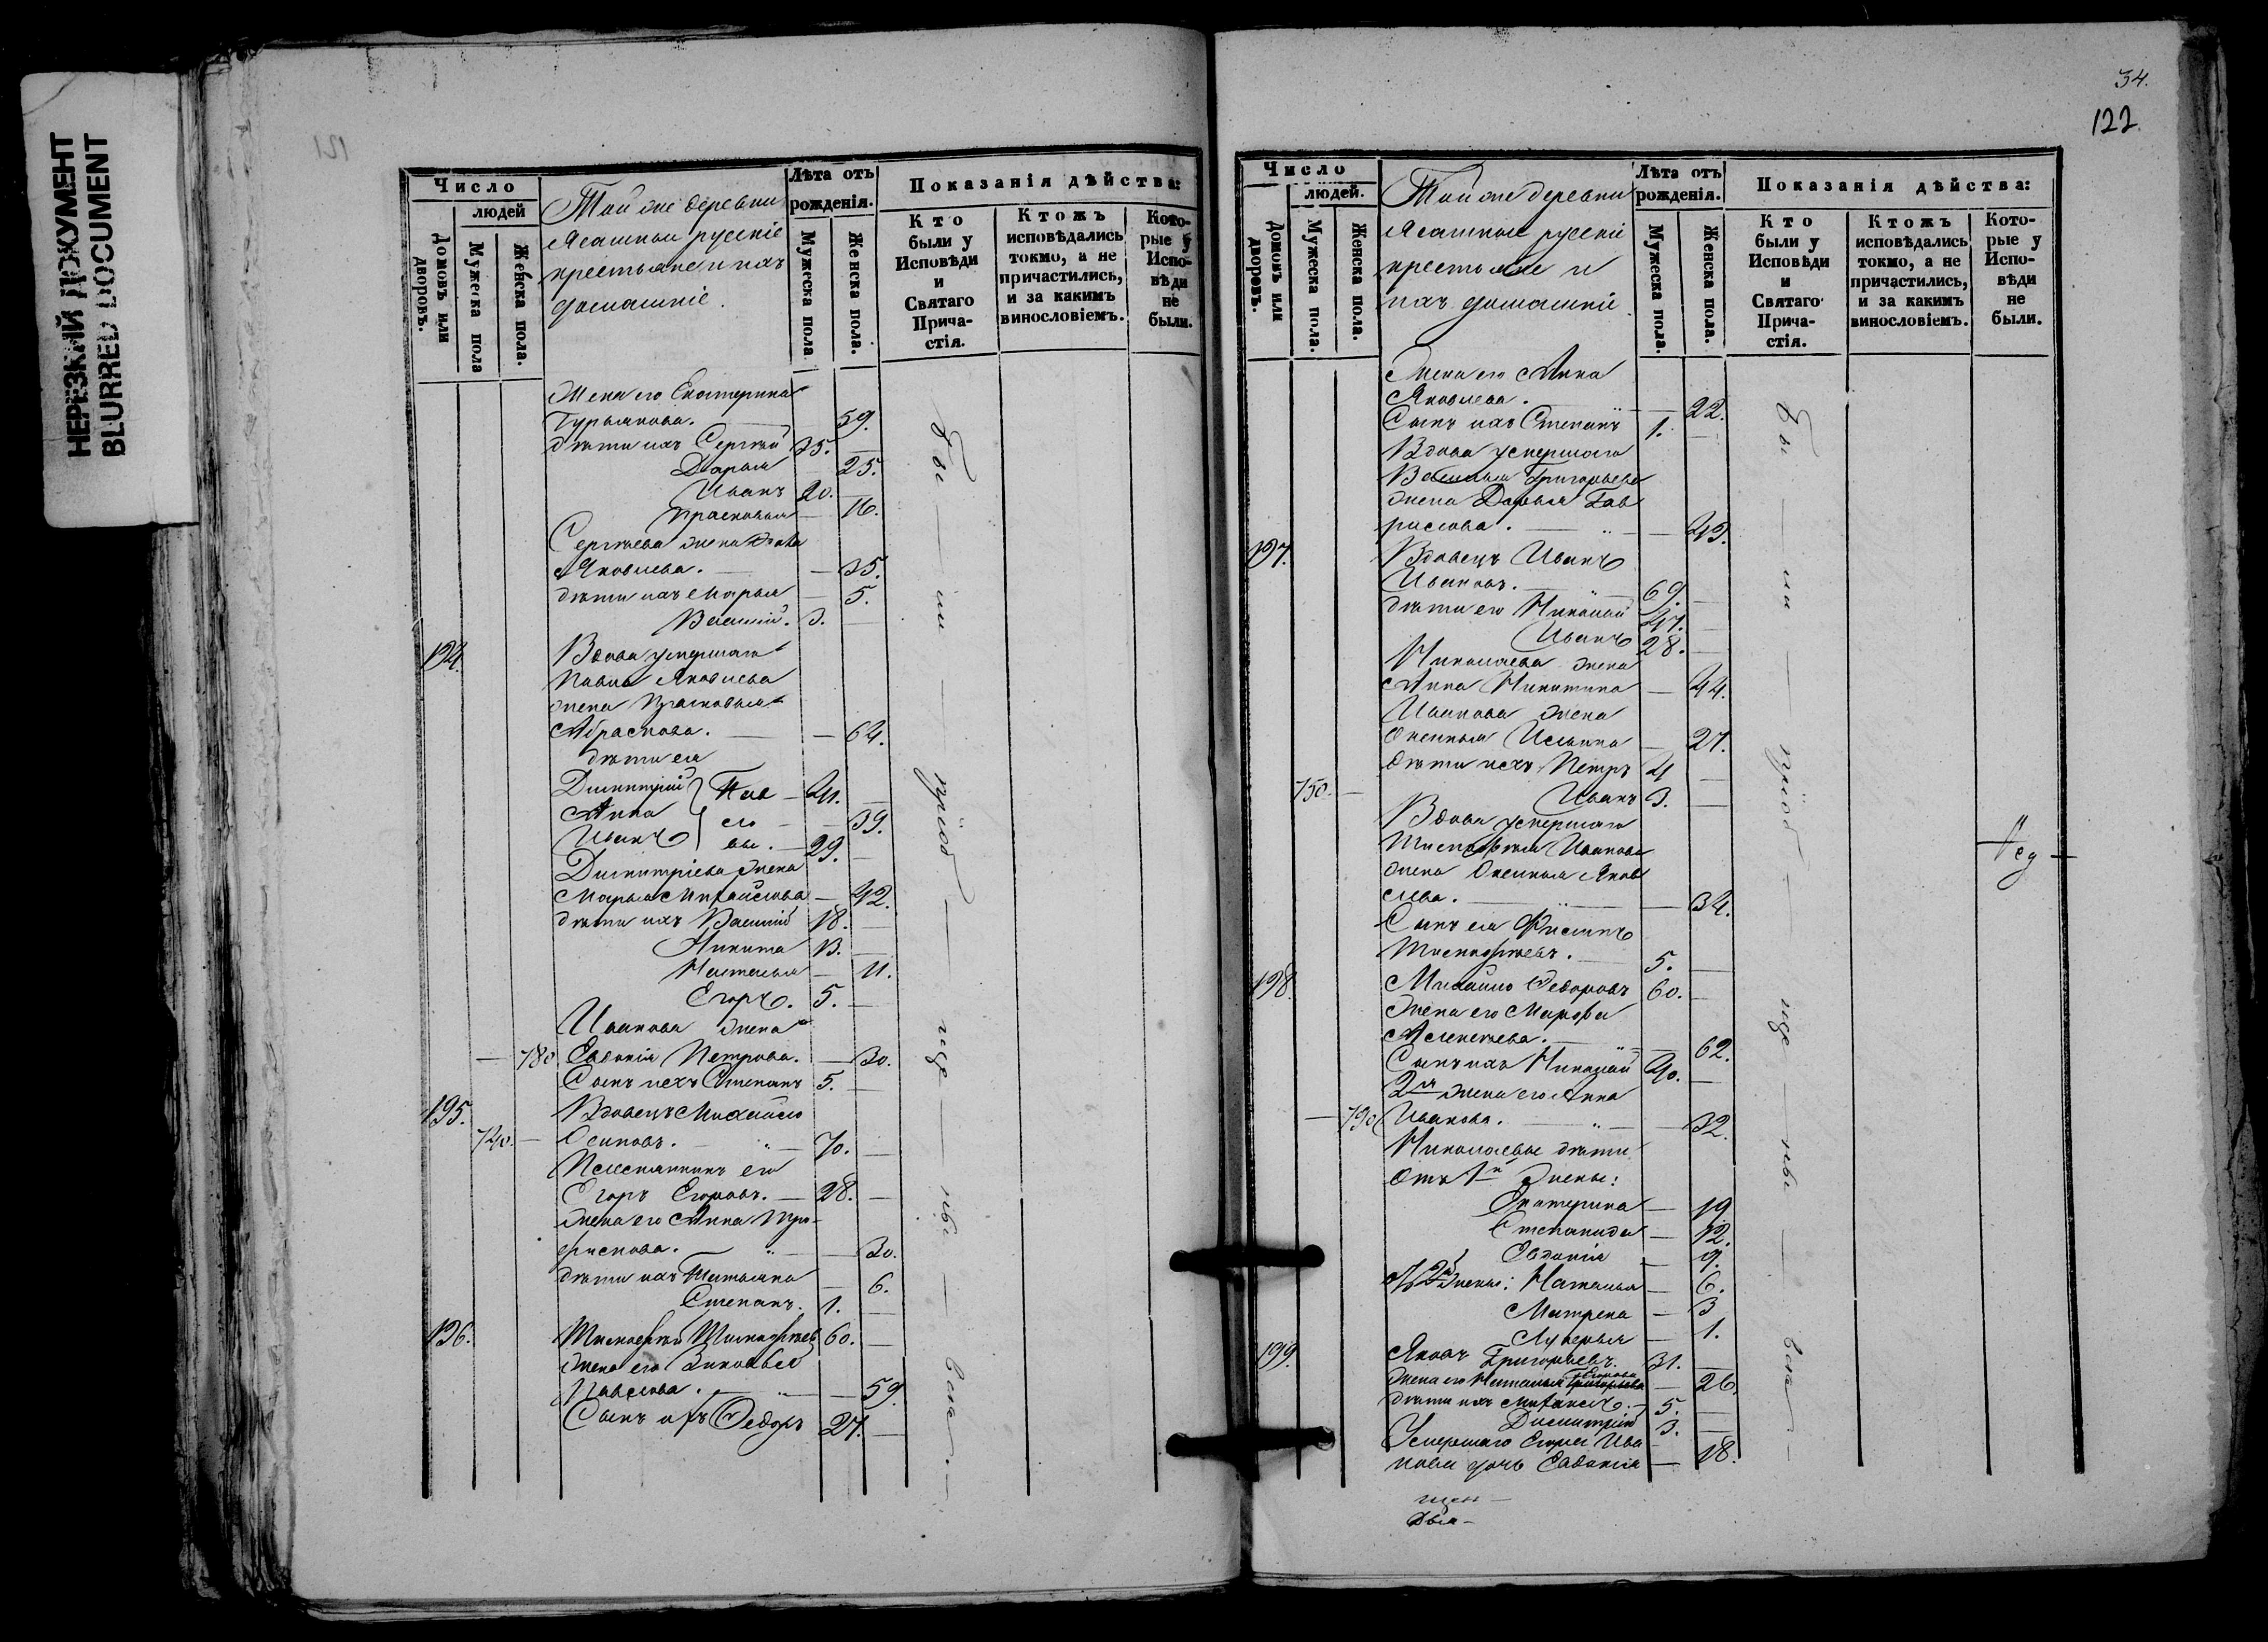 НЕРЕЗКИЙ ДОКУМЕНТ
BLURRED DOCUMENT
121
Число
людей
Домовъ или дворовъ.
Мужеска пола
Женска пола.
Той же деревни
Ясашныи русскіе
крестьяне и ихъ
домашніе.
Лѣта отъ рожденія.
Мужеска пола
Женска пола.
Показанія дѣйства:
Кто были у Исповѣди и Святаго Причастія.
Ктожъ исповѣдались токмо, а не причастились, и за какимъ винословіемъ.
Которые у Исповѣди не были.
Жена его Екатерина
Гурьянова. 59.
дѣти ихъ Сергѣй 35.
Дарья 25.
Иванъ 20.
Прасковья 16.
Сергѣева жена
Яковлева. — 35.
дѣти ихъ Марья — 5.
Василій. 3.
194. Вдова умершаго
Павла Яковлева
жена Прасковья
Абрамова. — 64.
дѣти ея
Димитрій Пав — 41.
Анна ло — 39.
Иванъ вы. — 29.
Димитріева жена
Марья Михайлова — 42.
дѣти ихъ Василій 18.
Никита 13.
Наталья — 11.
Егоръ. 5.
Иванова жена
— 780 Евдокія Петрова. — 30.
Сынъ ихъ Степанъ 5.
195. Вдовецъ Михайло
740. — Осиповъ. — 70.
Племянникъ его
Егоръ Егоровъ. — 28.
жена его Анна Тро-
фимова. — 30.
дѣти ихъ Татьяна — 6.
Степанъ. 1.
196. Тимофей Тимофѣев 60.
жена его Зиновья
Павлова. — 59.
Сынъ ихъ Федоръ 27.
Бы — ли — пріоб — ще — ны — вси —
34.
122.
Число
людей.
Домовъ или дворовъ.
Мужеска пола.
Женска пола.
Той же деревни
Ясашныи русскіи
крестьяне и
ихъ домашніи.
Лѣта отъ рожденія.
Мужеска пола.
Женска пола.
Показанія дѣйства:
Кто были у Исповѣди и Святаго Причастія.
Ктожъ исповѣдались токмо, а не причастились, и за какимъ винословіемъ.
Которые у Исповѣди не были.
Жена его Анна
Яковлева. — 22.
Сынъ ихъ Степанъ 1.
Вдова умершаго
Василья Григорьева
жена Дарья Гав
рилова. — 43.
197. Вдовецъ Иванъ
Ивановъ. 69.
дѣти его Николай 47.
Иванъ 28.
Николаева жена
Анна Никитина — 44.
Иванова жена
Оксинья Ильина — 27.
дѣти ихъ Петръ 4
750. — Иванъ 3.
Вдова умершаго
Тимофѣя Иванова
жена Оксинья Яков
лева. — 34.
Сынъ ея Филипъ
Тимофѣевъ. 5.
198. Михайло Федоровъ 60.
жена его Марфа
Алексѣева. — 62.
Сынъ ихъ Николай 40.
2я жена его Анна
— 790 Иванова. — 32.
Николаевы дѣти
отъ 1й жены:
Екатерина — 19
Степанида — 12.
Евдокія — 9.
2й жены: Наталья — 6.
Матрена — 3
Лукерья — 1.
199. Яковъ Григорьевъ. 31.
жена его Наталья Григорьева — 26.
дѣти ихъ 5.
Димитрій 3.
Умершаго Егора Ива
нова дочь Евдокія — 18.
Бы — ли — пріоб — ще — ны — вси —